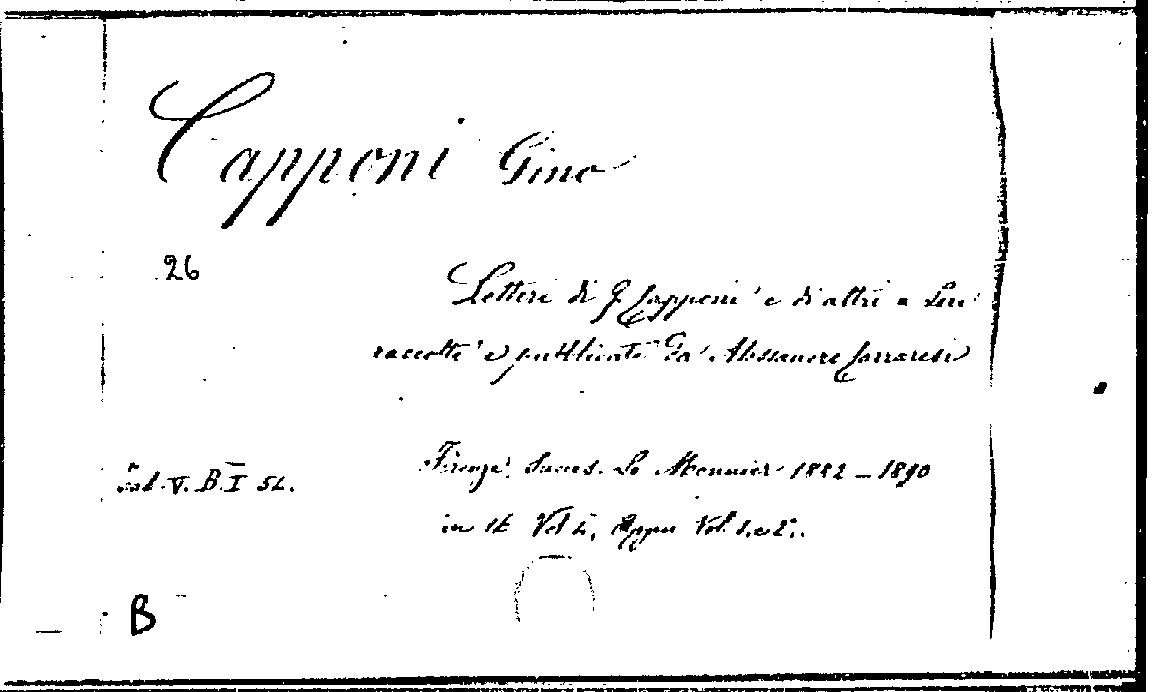 Capponi Gino
26
Lettere di G. Capponi e di altri a Lui
raccolte e pubblicate da Alessandro Carraresi
Firenze. Succes. Le Monnier 1882 - 1890
Sal. V. B. I 52.
in 12 Vol.
B